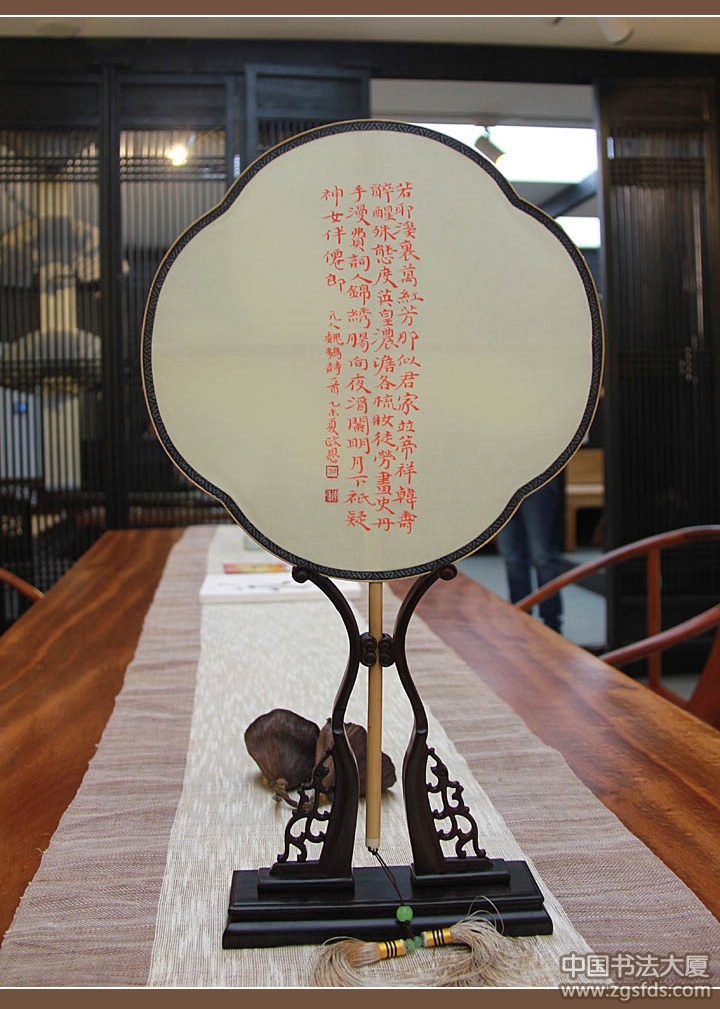 若耶溪裏萬紅芳那似君家竝蒂祥韓壽
醉醒殊態度英皇濃澹各梳妝徒勞畫史丹
手漫費詞人錦繡腸向夜酒闌明月下祇疑
神女伴僊郎 元人魏鶴詩一首 乙未夏
中国书法大厦
www.zgsfds.com